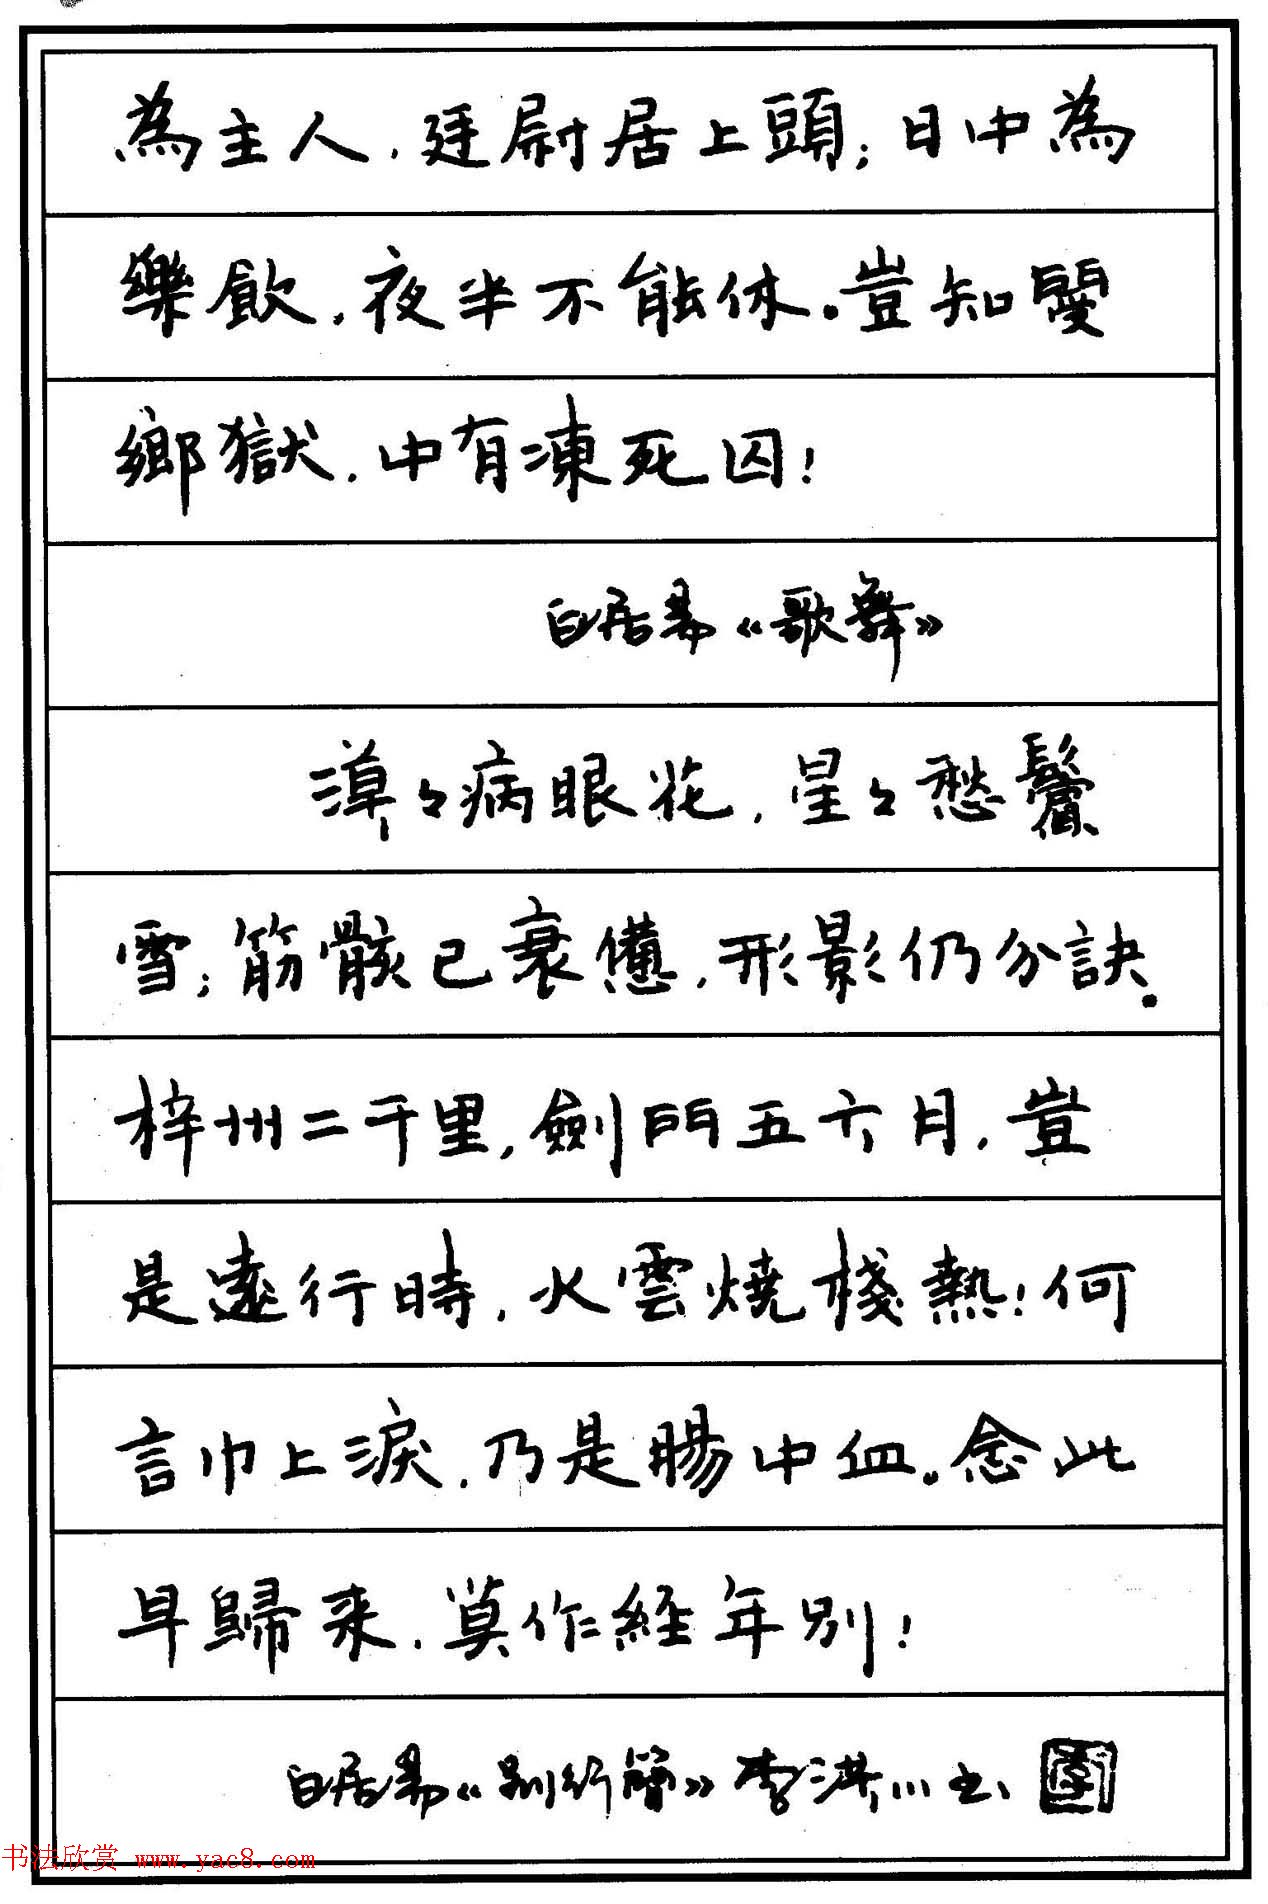 為主人，廷尉居上頭；日中為
樂飲，夜半不能休。豈知閿
鄉獄，中有凍死囚！
白居易《歌舞》
漠々病眼花，星々愁鬢
雪；筋骸已衰憊，形影仍分訣。
梓州二千里，劍門五六月，豈
是遠行時，火雲燒棧熱！何
言巾上淚，乃是腸中血。念此
早歸来，莫作經年別！
白居易《别行簡》李洪川书
书法欣赏 www.yac8.com